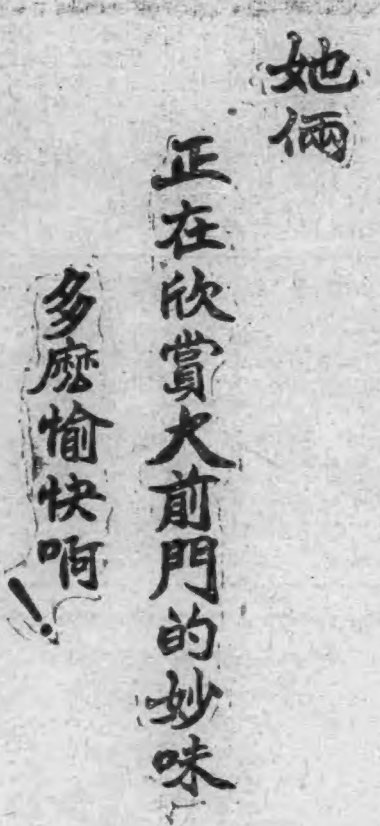 她倆
正在欣賞大前門的妙味
多麽愉快啊!